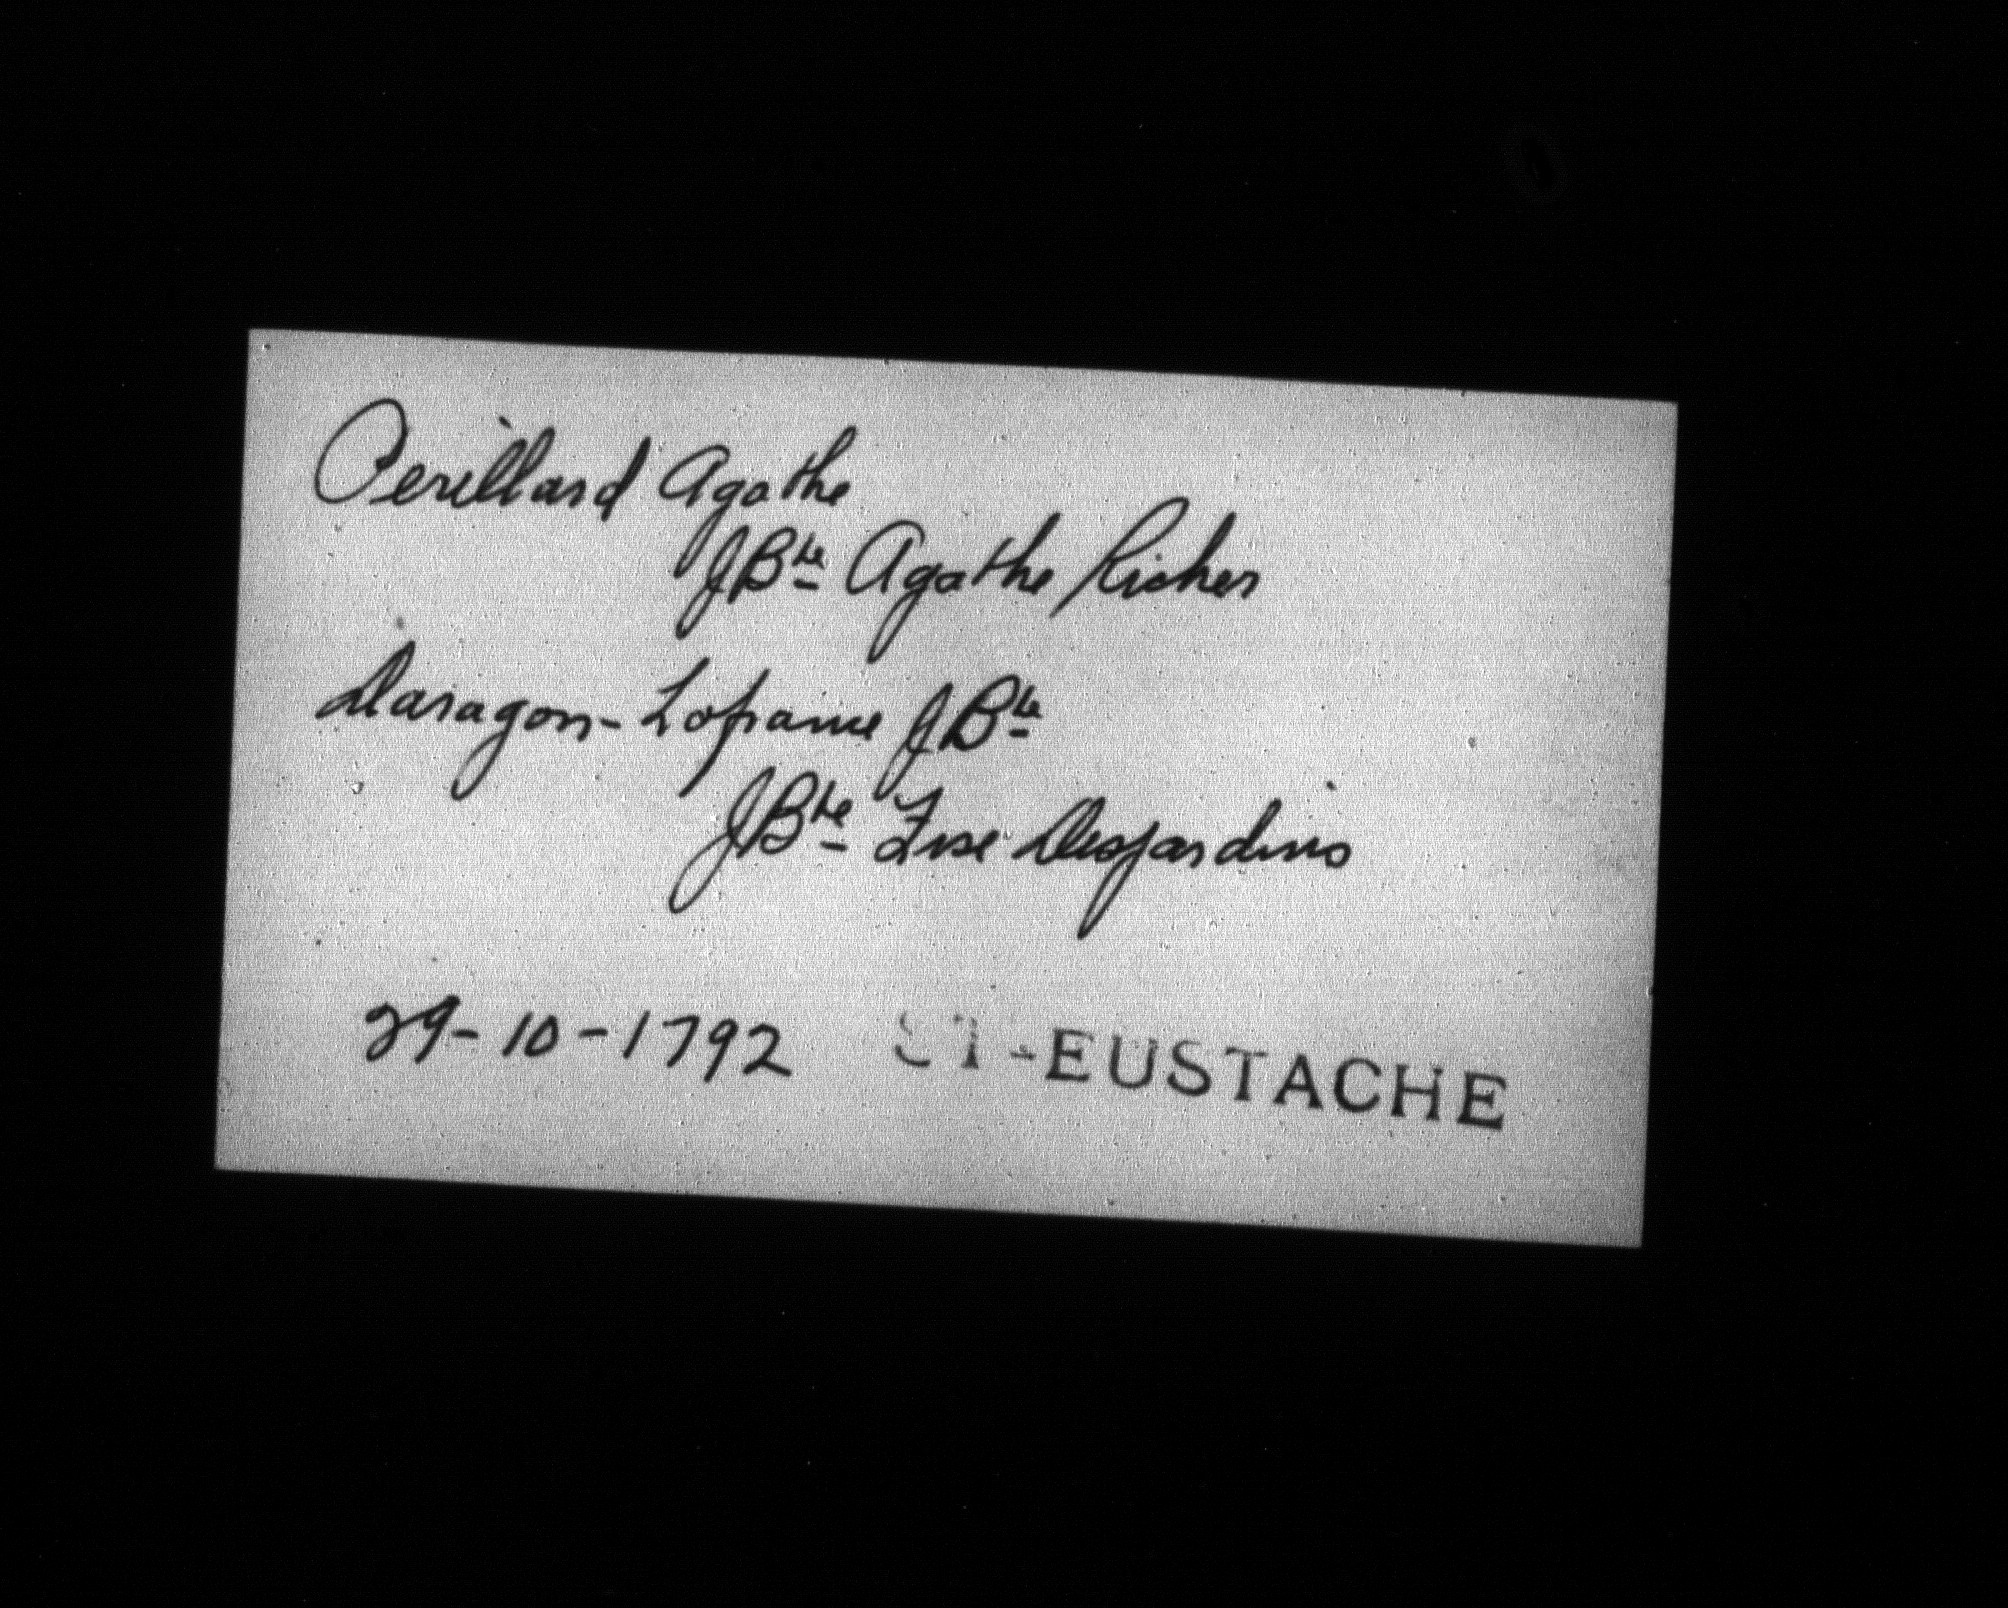 Perillard Agathe
JBte Agathe Richer
Daragon-Laframe JBte
JBte Frse Desjardins
29-10-1792 ST-EUSTACHE